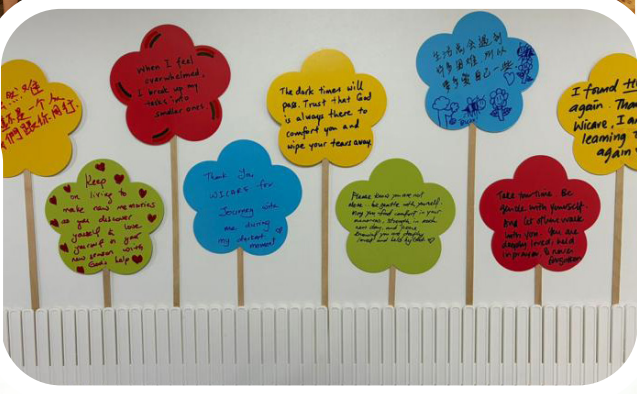 然 难
还是一个人
们跟你同行.
When I feel
overwhelmed,
I break up my
tasks into
smaller ones.
The dark times will
pass. Trust that God
is always there to
comfort you and
wipe your tears away.
生活当会遇到
许多困难 所以
要多爱自己一些
I found
again. Than
Wicare, I am
learning
again
Keep
on living to
make new memories
as you discover
yourself & love
yourself in your
new season with
God's help
Thank You
WICARE for
Journey with
me during
my darkest
moment
Please know you are not
alone. Be gentle with yourself.
May you find comfort in your
memories, strength in each
new day, and peace
knowing you are deeply
loved and held by God
Take your time. Be
gentle with yourself.
And let others walk
with you. You are
deeply loved, held
in prayer, & never
forgotten